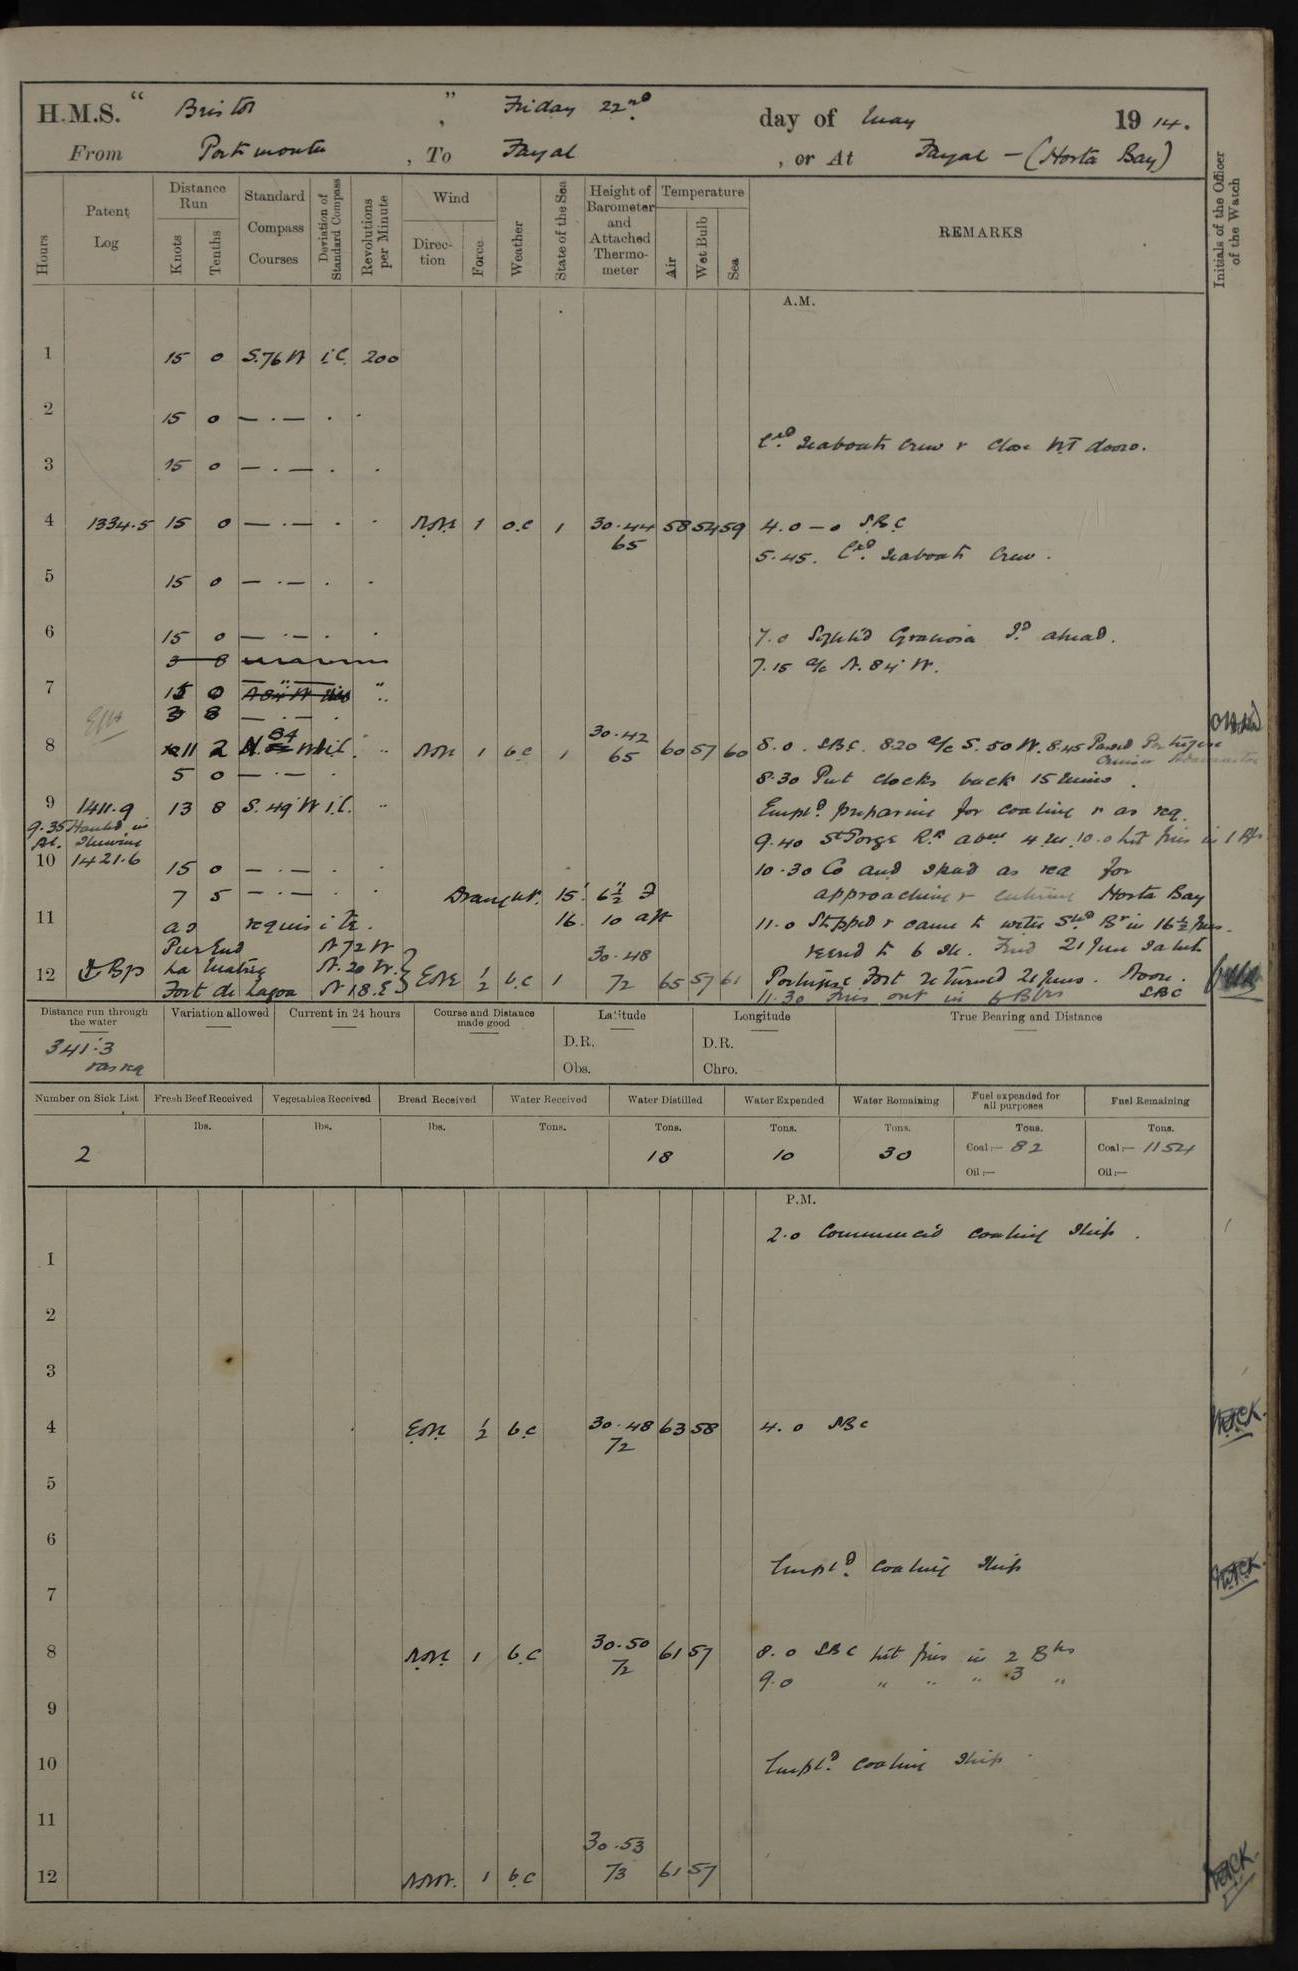 H.M.S. “ Bristol ”, Friday 22nd day of May 1914.
From Portsmouth, To Fayal, or At Fayal – (Horta Bay)
Hours
Patent Log
Distance Run
Knots
Tenths
Standard Compass Courses
Deviation of Standard Compass
Revolutions per Minute
Wind
Direction
Force
Weather
State of the Sea
Height of Barometer and Attached Thermometer
Temperature
Air
Wet Bulb
Sea
REMARKS
Initials of the Officer of the Watch
A.M.
1 15 0 S.76 W i.C. 200
2 15 0 — · — · ·
Exd Seaboats Crew & Close WT doors.
3 15 0 — · — · ·
4 1334.5 15 0 — · — · · NNE 1 o.c 1 30.44 65 58 54 59 4.0 — 0 SBC
5.45. Exd Seaboats Crew.
5 15 0 — · — · ·
6 15 0 — · — · · 7.0 Sight'd Graciosa Id ahead.
7.15 a/c N. 84 W.
7 15 0 — " — "
3 8 — · — ·
8 11 2 N. 84 W i.C. " NNE 1 b.c 1 30.42 65 60 57 60 8.0. SBC. 8.20 a/c S. 50 W. 8.45 Passed Portugese Cruiser
5 0 — · — · 8.30 Put clocks back 15 mins.
9 1411.9 13 8 S. 49 W i.C. " Empld preparing for coaling & as req.
9.35 Hauled in Pt. Steaming
9.40 St Jorge Rk abm 4 m. 10.0 lit fires in 1 Blr
10 1421.6 15 0 — · — · · 10.30 Co and speed as req for
7 5 — · — · · Draught. 15' 6½" F approaching & entering Horta Bay
11 as requisite. 16. 10 aft 11.0 Stopped & came to with Stbd Br in 16½ fms.
Pier End N 72 W veered to 6 Sh. Fired 21 Gun Salute
12 ⚓ Bgs La Matriz N. 20 W. ENE ½ b.c 1 30.48 72 65 57 61 Portugese Fort returned 21 guns. Noon.
Fort de Lagoa N 18. E 11.30 fires out in 6 Blrs SBC
Distance run through the water
341.3
& as req
Variation allowed
Current in 24 hours
Course and Distance made good
Latitude
D.R.
Obs.
Longitude
D.R.
Chro.
True Bearing and Distance
Number on Sick List
2
Fresh Beef Received
lbs.
Vegetables Received
lbs.
Bread Received
lbs.
Water Received
Tons.
Water Distilled
Tons.
18
Water Expended
Tons.
10
Water Remaining
Tons.
30
Fuel expended for all purposes
Tons.
Coal:— 82
Oil:—
Fuel Remaining
Tons.
Coal:— 1154
Oil:—
P.M.
2.0 Commenc'd coaling Ship.
1
2
3
4 ENE ½ b.c 30.48 72 63 58 4.0 SBC
5
6
Empld. Coaling Ship
7
8 NNE 1 b.c 30.50 72 61 57 8.0 SBC lit fires in 2 Blrs
9.0 " " " 3 "
9
10 Empld. Coaling Ship
11
12 NNW. 1 b.c 30.53 73 61 57